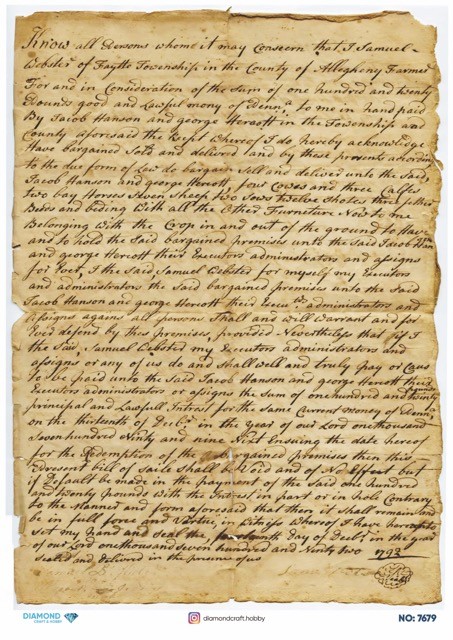 Know all Persons whome it may Conscern that I Samuel
Webster of Faytte Township in the County of Allegheny Farmer
For and in Consideration of the Sum of one hundred and twenty
Pounds good and Lawful mony of Penna. to me in hand paid
By Jacob Hanson and george Hercott in the Township and
County aforesaid the Recipt Whereof I do hereby acknowlidge
Have bargained Sold and delivered and by these presents according
to the due form of Law do bargain Sell and deliver unto the Said,
Jacob Hanson and george Hercott, four Cowes and three Calfes
two bay Horses Seven Sheep two Sows twelve Shotes three fether
Beads and beding With all the Other Furneture Now to me
Belonging With the Crop in and out of the ground to Have
and to hold the Said bargained premises unto the Said Jacob Hanson
and george Hercott their Executors administrators and assigns
for Ever, I the Said Samuel Webster for my self my Executors
and administrators the Said bargained premises unto the Said
Jacob Hanson and george Hercott their Execu administrators and
assigns agains all persons Shall and will Warrant and for
Ever defend by thes premises, provided Nevertheless that if I
the Said, Samuel Webster my Executors administrators and
assigns or any of us do and Shall well and truly pay or Caus
to be paid unto the Said Jacob Hanson and george Hercott their
Executors administrators or assigns the Sum of one hundred and twenty pounds
principal and Lawfull Intrest for the Same Current money of Penna
on the thirteenth of in the year of our Lord one thousand
Seven hundred Ninty and nine Next Ensuing the date hereof
for the Redemption of the bargained premises then this
present bill of Saile Shall be Void and of No Effect but
if Default be made in the payment of the Said one hundred
and twenty pounds With the Intrest in part or in hole Contrary
to the manner and form aforesaid that then it Shall remain and
be in full force and Virtue, in Witness Whereof I have hereunto
set my hand and Seal the, fourteenth day of in the year
of our Lord one thousand Seven hundred and Ninty two 1792
Sealed and Delivered in the presence of us
DIAMOND
CRAFT & HOBBY
diamondcraft.hobby
NO: 7679